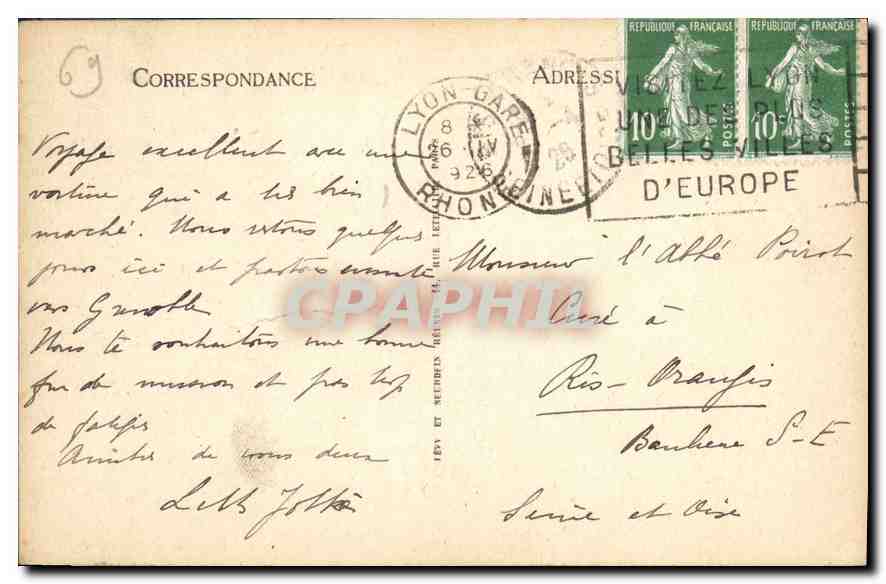 69
CORRESPONDANCE
ADRESSE
RÉPUBLIQUE FRANÇAISE
RÉPUBLIQUE FRANÇAISE
10c POSTES
10c POSTES
LYON-GARE
RHONE
8
6 IV
926
VISITEZ LYON
UNE DES PLUS
BELLES VILLES
D'EUROPE
Voyage excellent avec une
voiture qui a très bien
marché. Nous restons quelques
jours ici et partons ensuite
vers Grenoble
Nous te souhaitons une bonne
fin de mission et pas trop
de fatigue
Amitiés de nous deux
Monsieur l'Abbé Poirot
Curé à
Ris-Orangis
Banlieue S-E
Seine et Oise
LÉVY ET NEURDEIN RÉUNIS 44, RUE LETELLIER, PARIS
CPAPHIL